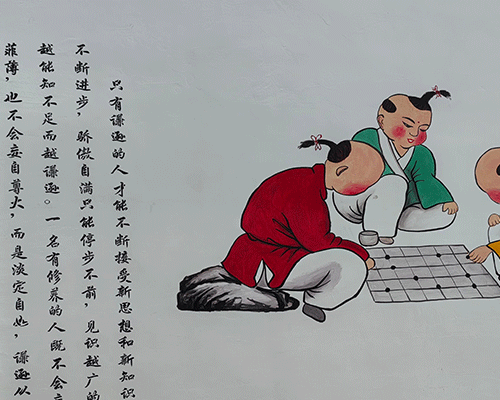 只有谦逊的人才能不断接受新思想和新知识
不断进步，骄傲自满只能停步不前，见识越广的
越能知不足而越谦逊。一名有修养的人既不会妄
菲薄，也不会妄自尊大，而是淡定自如，谦逊从